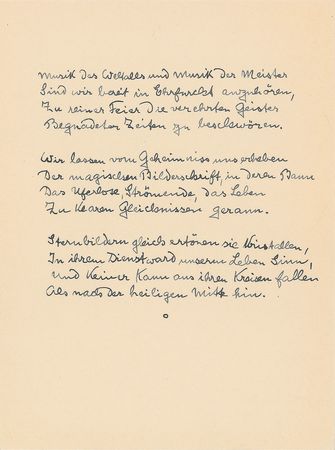 Musik des Weltalls und Musik der Meister
Sind wir bereit in Ehrfurcht anzuhören,
Zu reiner Feier die verehrten Geister
Begnadeter Zeiten zu beschwören.
Wir lassen vom Geheimniss uns erheben
Der magischen Bilderschrift, in deren Bann
Das Uferlose, Strömende, das Leben
Zu klaren Gleichnissen gerann.
Sternbildern gleich ertönen sie kristallen,
In ihrem Dienst ward unserm Leben Sinn,
Und Keiner kann aus ihren Kreisen fallen
Als nach der heiligen Mitte hin.